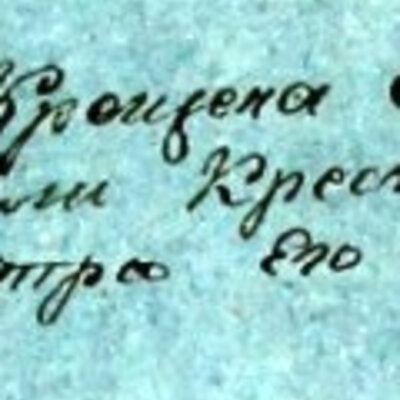 Крощена
ли Крес
тра Его